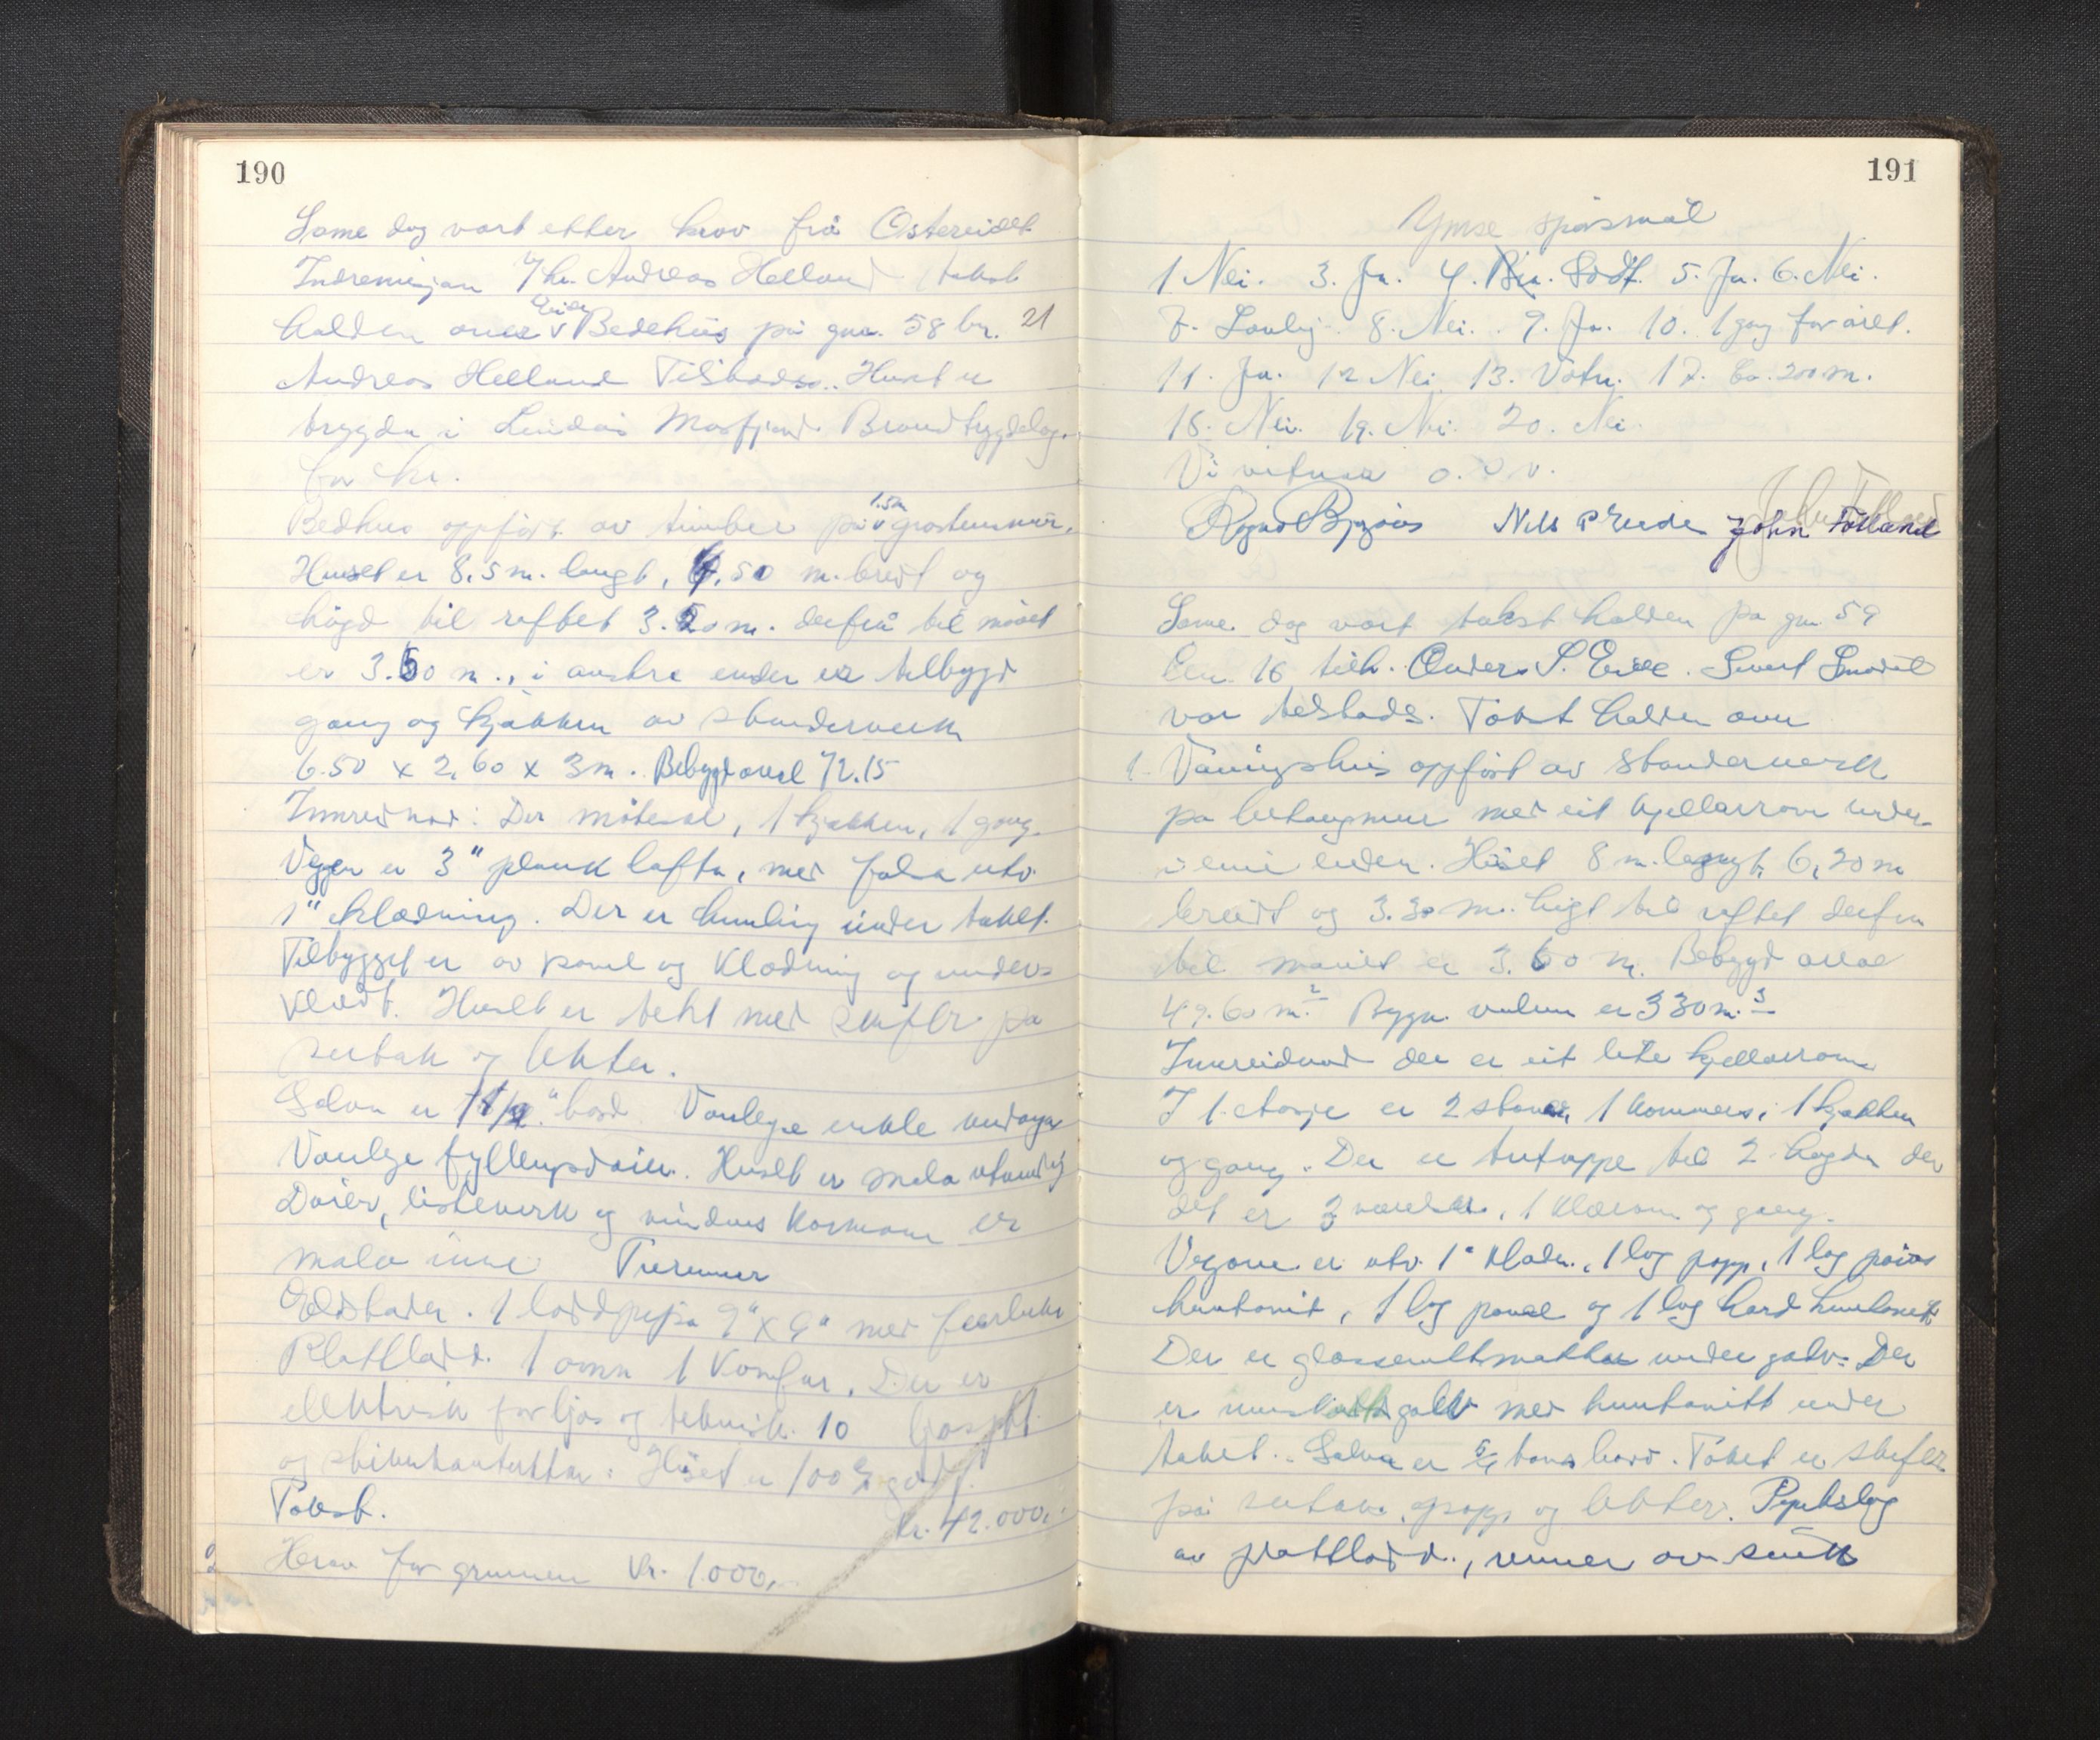 190
Same dag vart etter krav frå Ostereidet
Indremisjon v/ hr. Andreas Helland takst
halden over Eide Bedehus på gnr. 58 bnr. 21
Andreas Helland Tilstades. Huset er
trygda i Lindås Masfjord Brandtrygdelag.
for kr.
Bedhus oppført av timber på 1.5m gråsteinsmur.
Huset er 8,5 m. langt, 6,50 m. breidt og
høgd til reftet 3.20 m. derfrå til mønet
er 3.50 m., i austre enden er tilbygd
gang og kjøkken av stenderverk
6.50 x 2,60 x 3m. Bebygd areal 72.15
Innreidnad: Der møtesal, 1 kjøkken, 1 gang.
Veggen er 3" plank lafta, med falsa utv.
1" klædning. Der er himling under taket.
Tilbygget er av panel og klædning og under-
klædt. Huset er tekt med skifer på
sutak og lekter.
Golva er 1 1/2" bord Vanlege enkle vindauga
Vanlege fyllingsdører. Huset er mala utvendig
Dører, listeverk og vindaus karmane er
mala inne
Eldstader. 1 lødd pipa 9" x 9" med
Plattlødd. 1 omn 1 Komfur. Der er
elektrisk for ljos og teknisk. 10 ljospkt.
og stikkontaktar. Huset er 100 % godt.
Takst. kr. 42.000,-
Herav for grunnen kr. 1.000,-
191
Ymse spørsmål
1 Nei. 3. Ja. 4. Bra. Godt. 5. Ja. 6. Nei.
7. Lovleg. 8. Nei. 9. Ja. 10. 1 gong for året.
11. Ja. 12 Nei 13. Vatn. 17. Ca. 200 m.
18. Nei. 19. Nei. 20. Nei.
Vi vitnar o. s. v.
Nils P Eide John Fotland
Same dag vart takst halden på gnr. 59
bnr. 16 tilh. Anders S. Eide. Sivert
var tilstades. Takst halden over
1. Våningshus oppført av stenderverk
på betongmur med eit kjellarrom under
i eine enden. Huset 8 m. langt, 6,20 m
breidt og 3.30 m. høgt til reftet derfrå
til mønet er 3.60 m. Bebygd areal
49.60 m.² Bygn. volum er 330 m.³
Innreidnad der er eit lite kjellarrom
I 1. etasje er 2 stover, 1 kammers, 1 kjøkken
og gang. Der er tretrappe til 2. høgda der
det er 3 værelser, 1 klærom og gang.
Veggane er utv. 1" klædn., 1 lag papp, 1 lag porøs
huntonit, 1 lag panel og 1 lag hard huntonitt
Der er glassvattmatter under golv. Der
er golv med huntonitt under
taket. Golva er 5/4 toms bord. Taket er skifer
på sutak, papp og lekter. Pipebeslag
av plattlødd., renner av sink